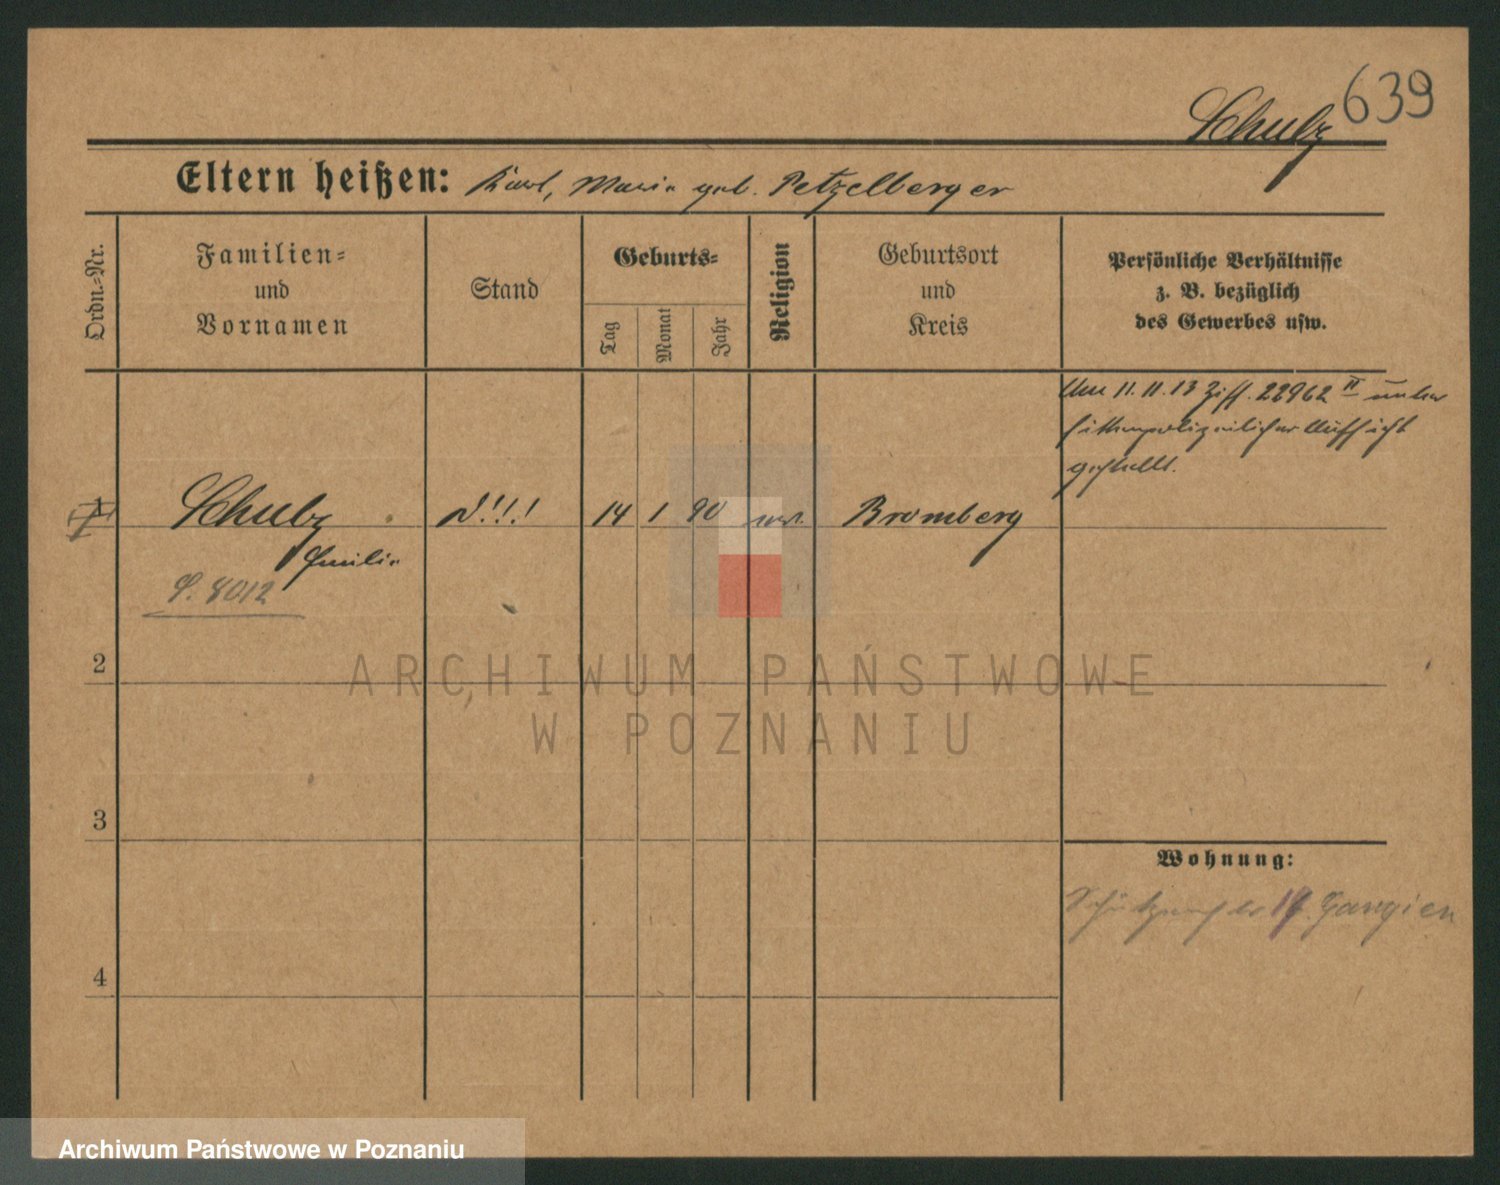 639
Schulz
Eltern heißen: Karl, Marie geb. Petzelberger
Ordn.-Nr.
Familien-
und
Vornamen
Stand
Geburts-
Tag
Monat
Jahr
Religion
Geburtsort
und
Kreis
Persönliche Verhältnisse
z. B. bezüglich
des Gewerbes usw.
Am 11.11.13 Ziff. 22962 II unter
sittenpolizeilicher Aufsicht
gestellt.
1 Schulz 14 1 90 Bromberg
Emilie
S. 8012
2
ARCHIWUM PAŃSTWOWE
W POZNANIU
3
Wohnung:
4
Archiwum Państwowe w Poznaniu